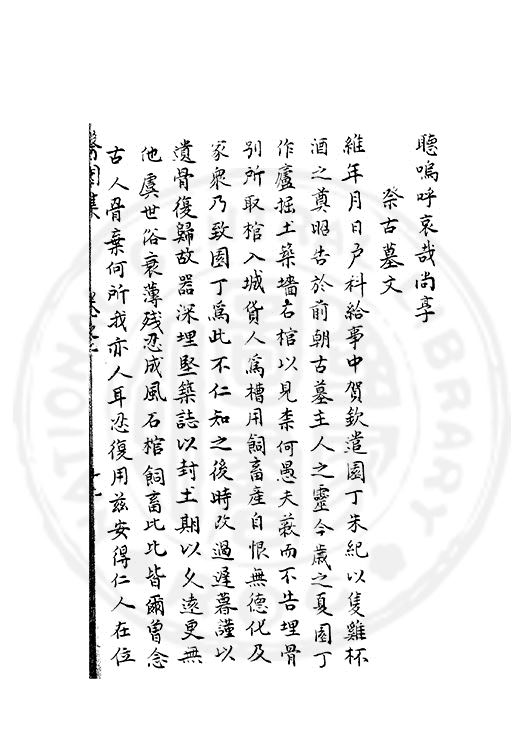 聽嗚呼哀哉尚享
祭古墓文
維年月日戶科給事中賀欽遣園丁朱紀以隻雞杯
酒之奠昭告於前朝古墓主人之靈今歲之夏園丁
作廬掘土築墻石棺以見柰何愚夫蔽而不告埋骨
別所取棺入城貸人爲槽用飼畜產自恨無德化及
家衆乃致園丁爲此不仁知之後時改過遲暮謹以
遺骨復歸故器深埋堅築誌以封土期以久遠更無
他虞世俗衰薄殘忍成風石棺飼畜比比皆爾曾念
古人骨棄何所我亦人耳忍復用茲安得仁人在位
醫閭集